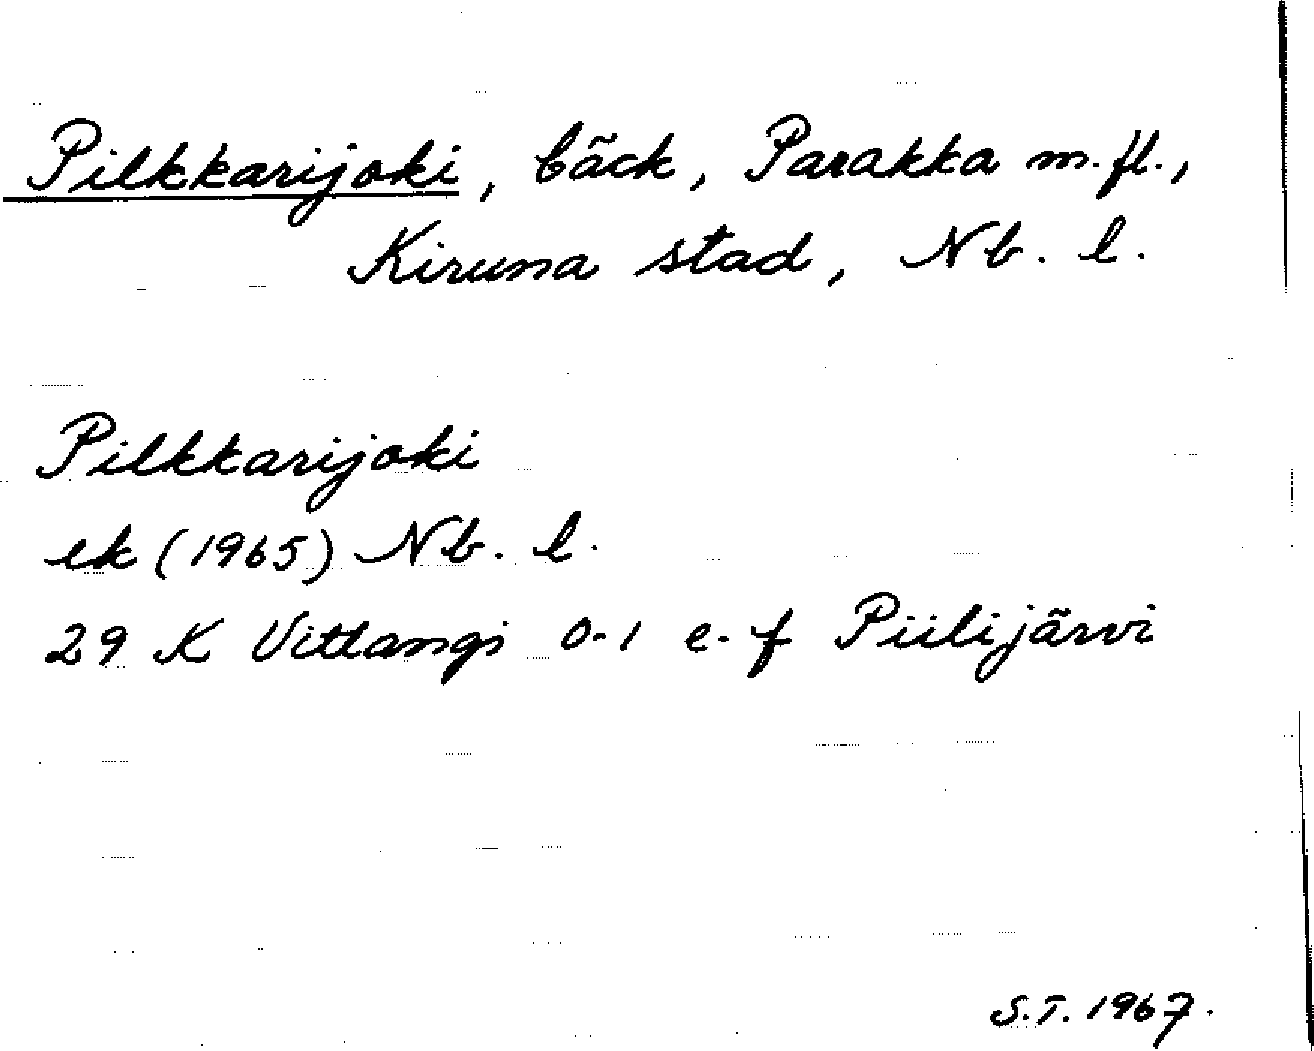 Pilkkarijoki, bäck, Parakka m.fl.,
Kiruna stad, Nb. l.
Pilkkarijoki
ek (1965) Nb. l.
29 K Vittangi 0-1 e-f Piilijärvi
S.T. 1967.